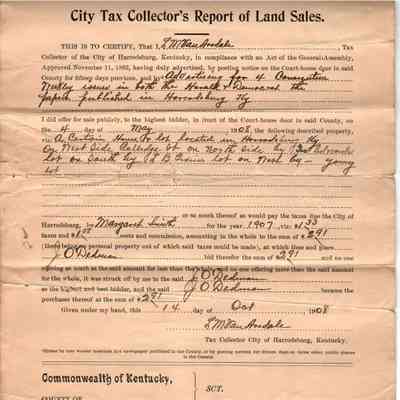 City Tax Collector's Report of Land Sales.
THIS IS TO CERTIFY, That I, L M Van Arsdale Tax
Collector of the City of Harrodsburg, in compliance with an Act of the General Assembly,
Approved November 11, 1892, having duly advertised, by posting notice on the Court-house door in said
County for fifteen days previous, and by Advertising for 4 Consecutive
Weekly issues in both the Herald & Democrat the
papers published in Harrodsburg Ky
I did offer for sale publicly, to the highest bidder, in front of the Court-house door in said County, on
the 4 day of May 1908, the following described property,
viz: A Certain House & lot located in Harrodsburg Ky
on West Side College St on North side by
Lot on South by J B lot on West by — young
lot
or so much thereof as would pay the taxes due the City of
Harrodsburg, by Margaret Smith for the year 1907, viz: $1 33
taxes and $1 58 costs and commission, amounting in the whole to the sum of $2 91
(there being no personal property out of which said taxes could be made), at which time and place
J O Dedman bid therefor the sum of $2 91 and no one
offering as much as the said amount for less than the whole, and no one offering more than the said amount
for the whole, it was struck off by me to the said J O Dedman
as the highest and best bidder, and the said J O Dedman became the
purchaser thereof at the sum of $2 91
Given under my hand, this 14 day of Oct 1908
L M Van Arsdale
Tax Collector City of Harrodsburg, Kentucky.
Commonwealth of Kentucky,
COUNTY OF
SCT.